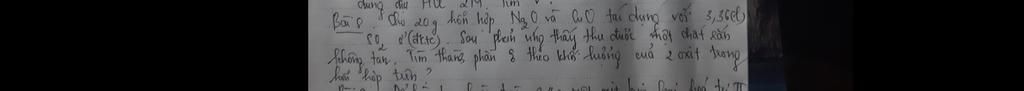 dung đủ HCl 2M. Tìm V.
Bài 8. Cho 20g hỗn hợp Na2O và CuO tác dụng với 3,36(l)
SO2 ở (đktc). Sau phản ứng thấy thu được một chất rắn
không tan. Tìm thành phần % theo khối lượng của 2 oxit trong
hỗn hợp trên?